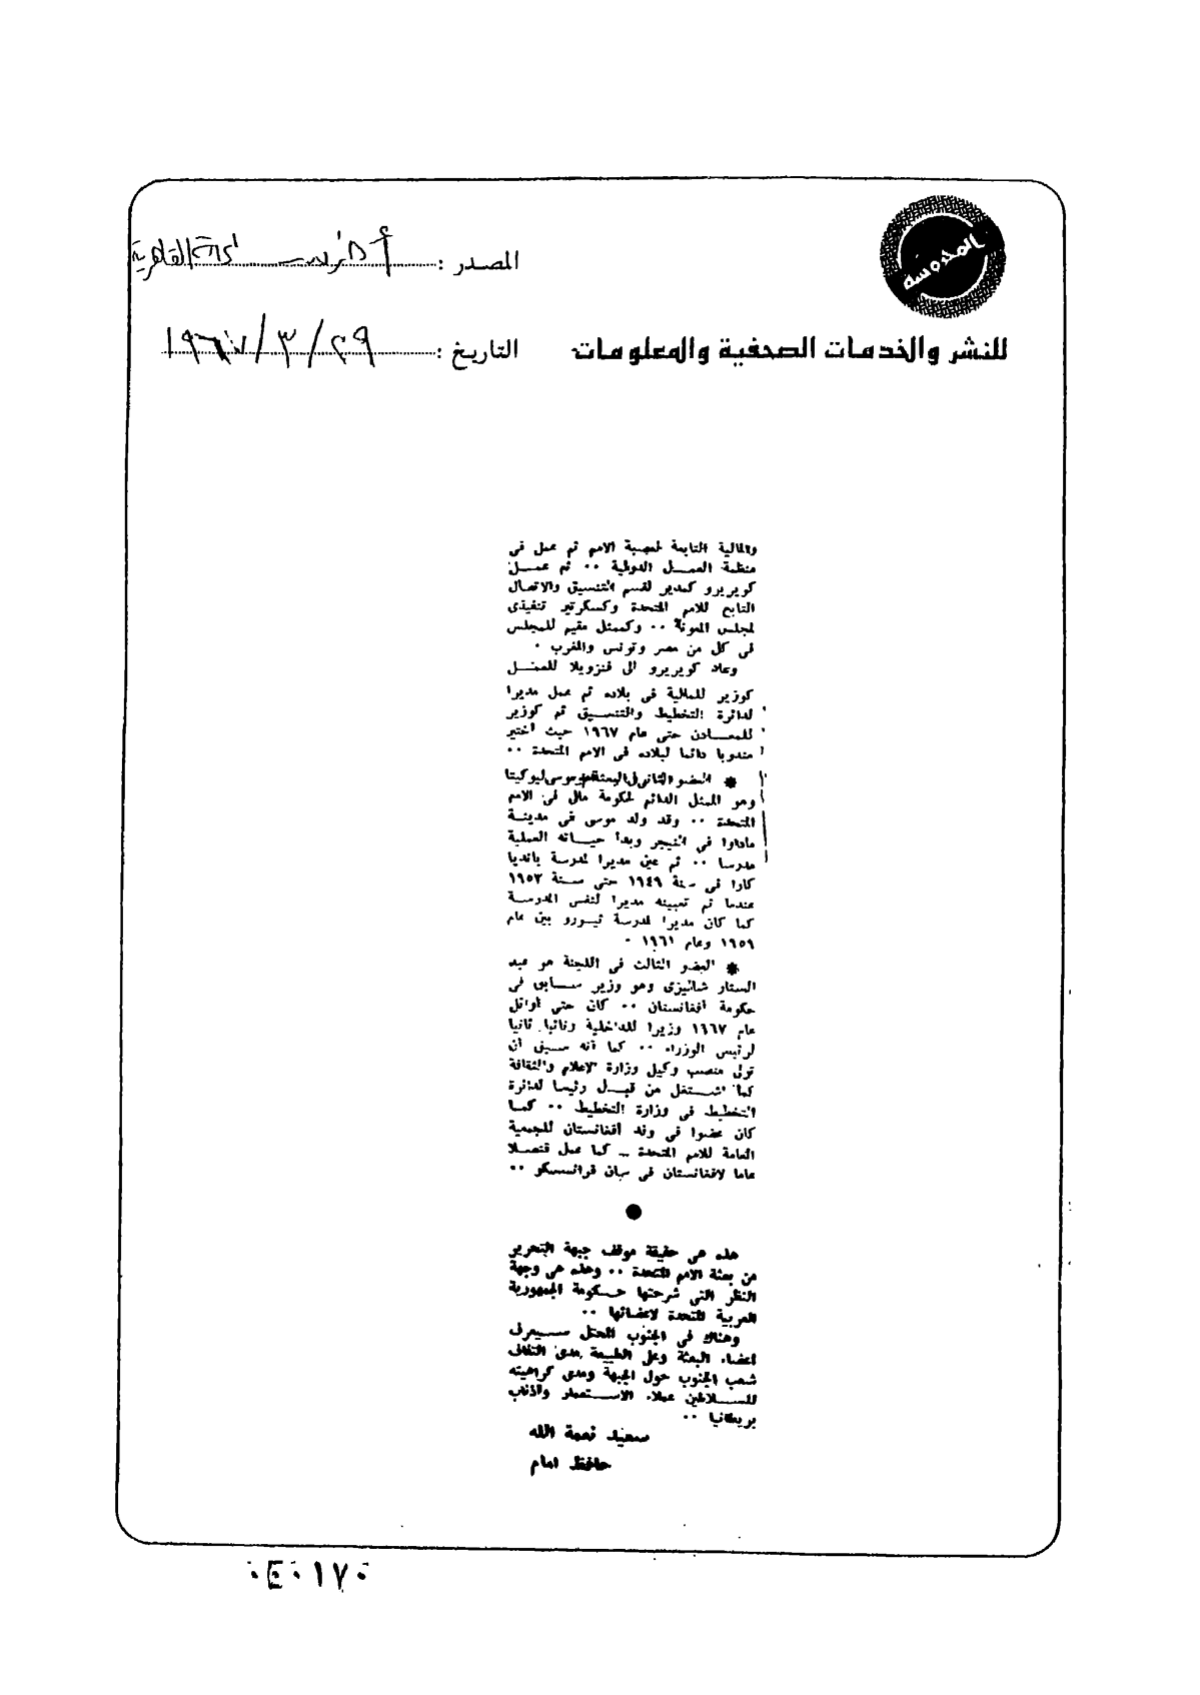 المحروسة
المصدر :
للنشر والخدمات الصحفية والمعلومات
التاريخ : ٢٩/٣/١٩٦٧
والمالية التابعة لعصبة الامم ثم عمل فى
منظمة العمل الدولية ٠٠ ثم عمل
كويريرو كمدير لقسم التنسيق والاتصال
التابع للامم المتحدة وكسكرتير تنفيذى
لمجلس المعونة ٠٠ وكممثل مقيم للمجلس
فى كل من مصر وتونس والمغرب ٠
وعاد كويريرو الى فنزويلا للعمل
كوزير للمالية فى بلاده ثم عمل مديرا
لدائرة التخطيط والتنسيق ثم كوزير
للمعادن حتى عام ١٩٦٧ حيث اختير
مندوبا دائما لبلاده فى الامم المتحدة ٠٠
✸ العضو الثانى فى البعثة هو موسى ليو كيتا
وهو الممثل الدائم لحكومة مالى فى الامم
المتحدة ٠٠ وقد ولد موسى فى مدينة
ماداوا فى النيجر وبدأ حياته العملية
مدرسا ٠٠ ثم عين مديرا لمدرسة بانديا
كارا فى سنة ١٩٤٩ حتى سنة ١٩٥٢
عندما تم تعيينه مديرا لنفس المدرسة
كما كان مديرا لمدرسة ثيورو بين عام
١٩٥٩ وعام ١٩٦١ ٠
✸ العضو الثالث فى اللجنة هو عبد
الستار شاليزى وهو وزير سابق فى
حكومة أفغانستان ٠٠ كان حتى أوائل
عام ١٩٦٧ وزيرا للداخلية ونائبا ثانيا
لرئيس الوزراء ٠٠ كما أنه سبق أن
تولى منصب وكيل وزارة الاعلام والثقافة
كما اشتغل من قبل رئيسا لدائرة
التخطيط فى وزارة التخطيط ٠٠ كما
كان عضوا فى وفد أفغانستان للجمعية
العامة للامم المتحدة ٠٠ كما عمل قنصلا
عاما لافغانستان فى سان فرانسيسكو ٠٠
●
هذه هى حقيقة موقف جبهة التحرير
من بعثة الامم المتحدة ٠٠ وهذه هى وجهة
النظر التى شرحتها حكومة الجمهورية
العربية المتحدة لاعضائها ٠٠
وهناك فى الجنوب المحتل سيعرف
أعضاء البعثة وعلى الطبيعة مدى التفاف
شعب الجنوب حول الجبهة ومدى كراهيته
للسلاطين عملاء الاستعمار وأذناب
بريطانيا ٠٠
سعيد نعمة الله
حافظ امام